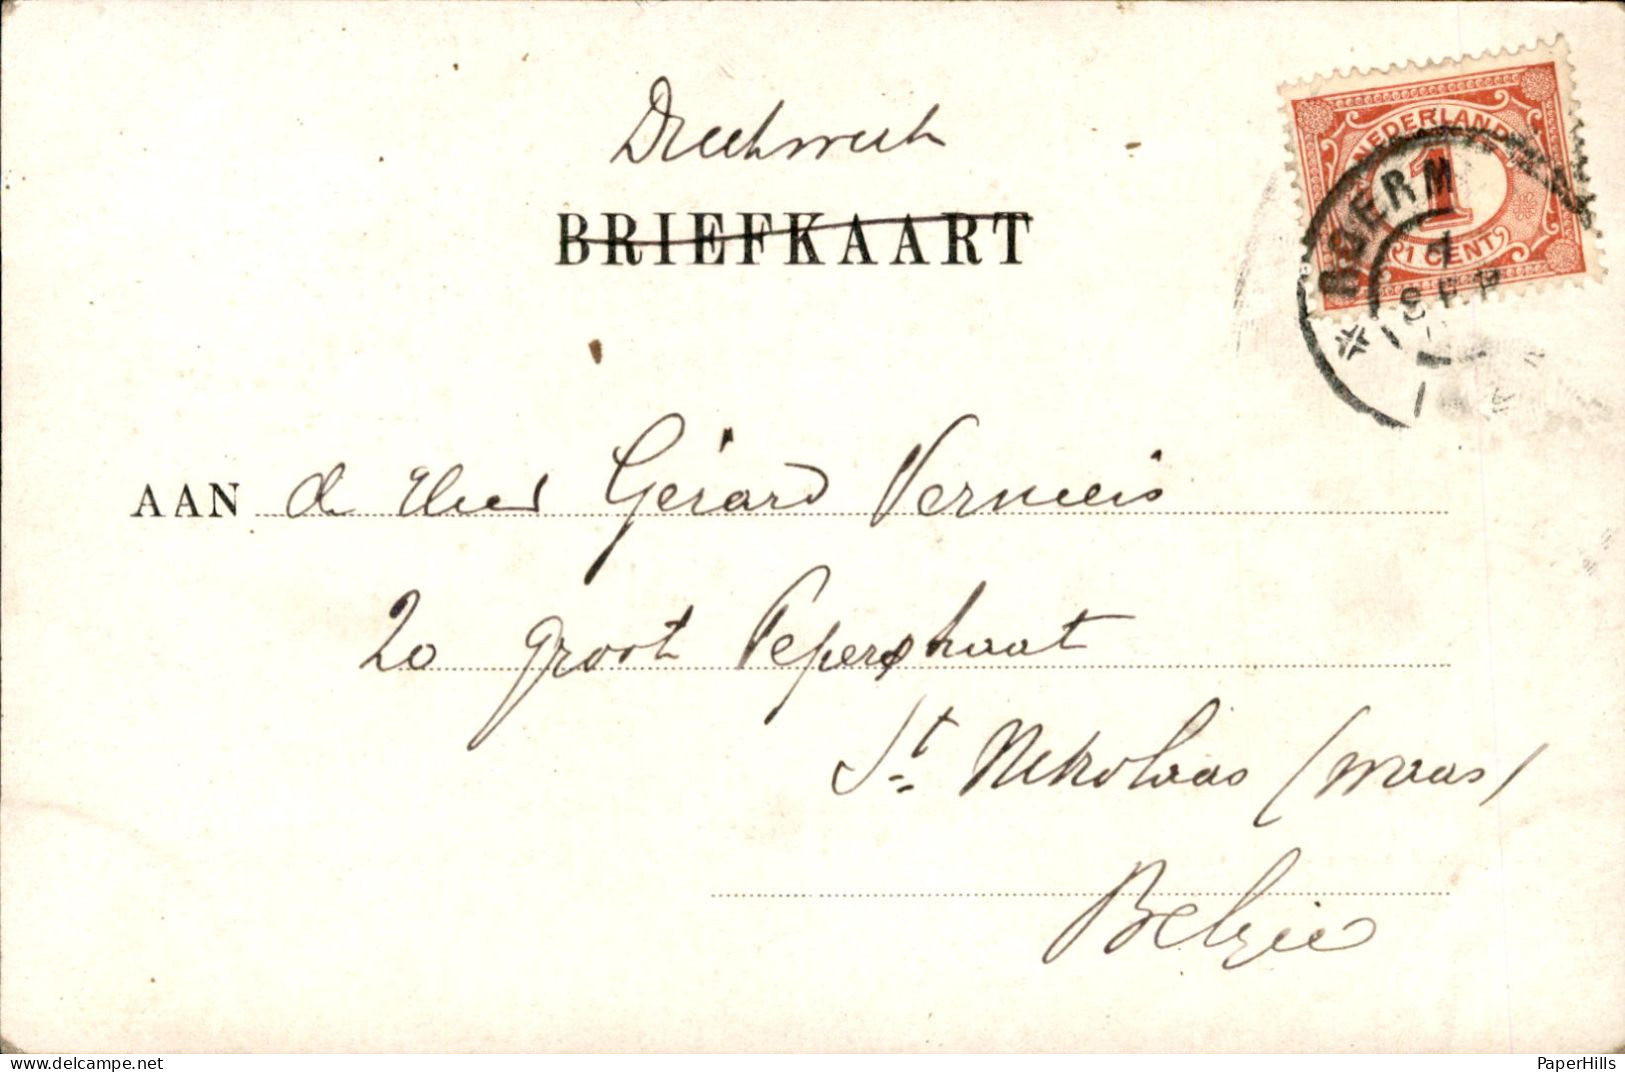 Drukwerk
BRIEFKAART
NEDERLAND
1
1 CENT
ROERM
SEP
AAN de Heer Gérard Vermeeis
20 groot Peperstraat
St. Nikolaas (Waas)
Belgie
PaperHills